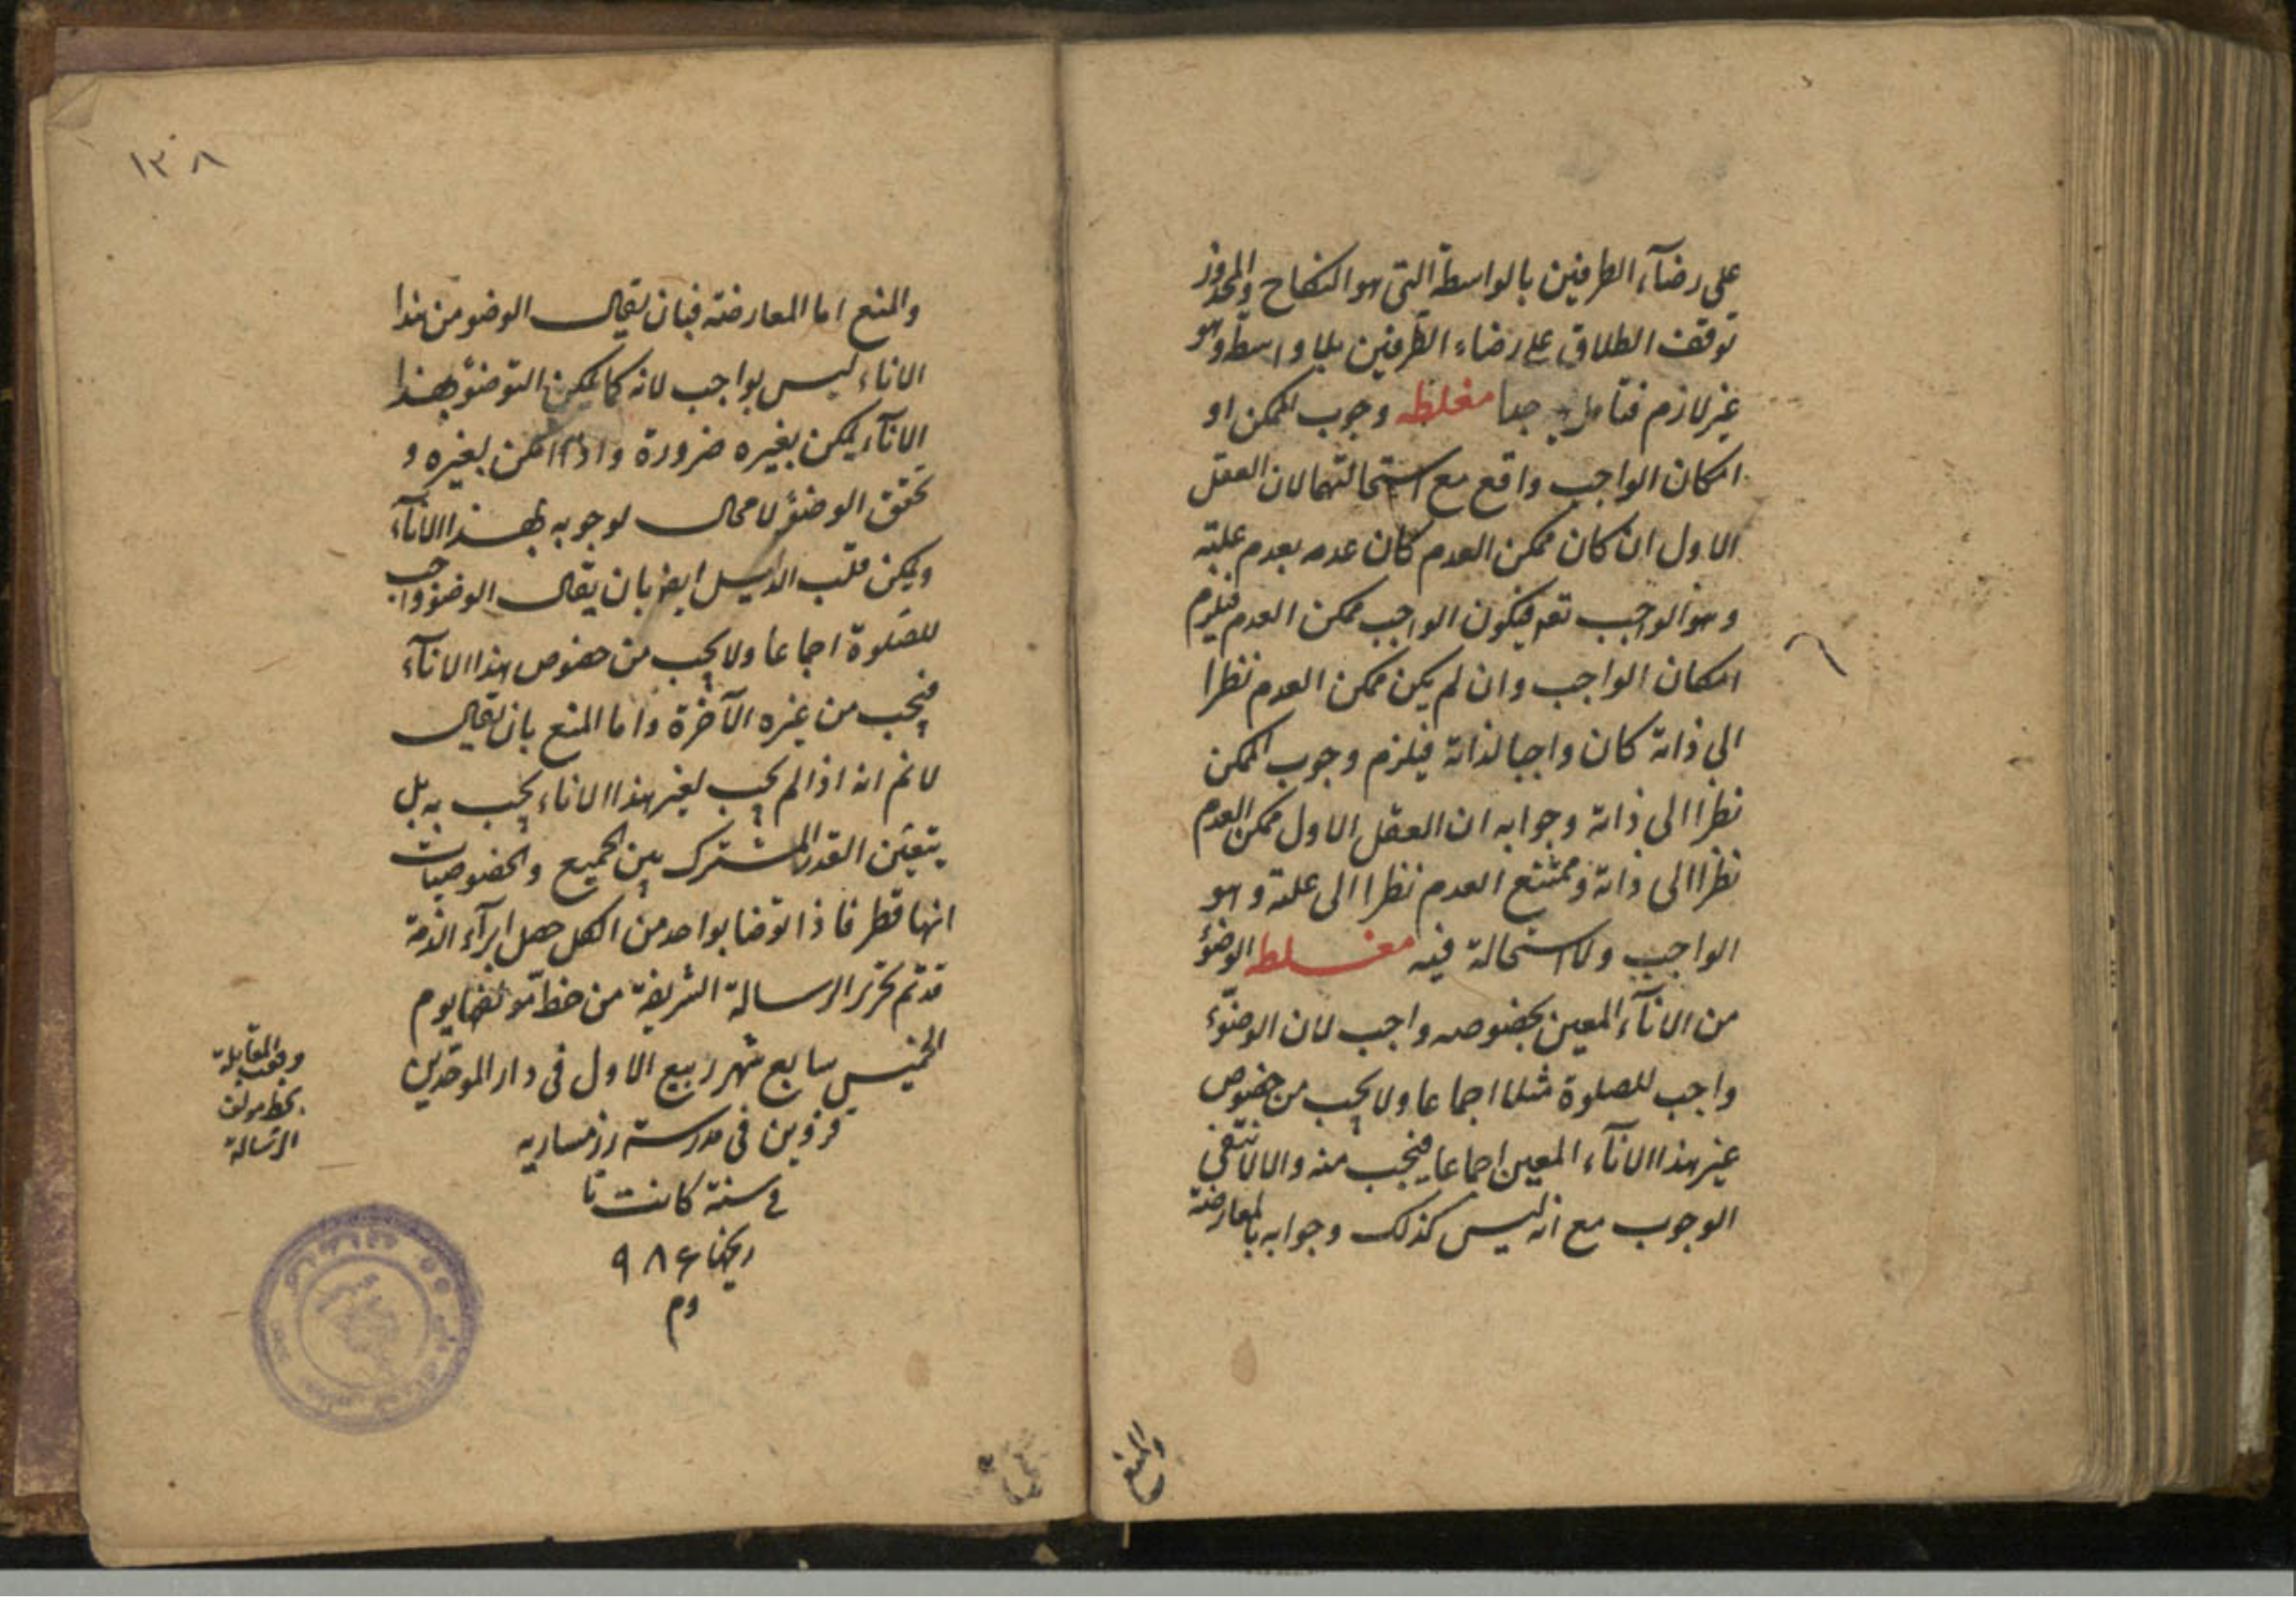 على رضآء الطرفين بالواسطة التى هو النكاح والمحذور
توقف الطلاق على رضاء الطرفين بلا واسطة وهو
غير لازم فتأمل جدا مغلطه وجوب الممكن او
امكان الواجب واقع مع استحالتهما لان العقل
الاول ان كان ممكن العدم كان عدمه بعدم علته
وهو الواجب تعم فيكون الواجب ممكن العدم فيلزم
امكان الواجب وان لم يكن ممكن العدم نظرا
الى ذاته كان واجبا لذاته فيلزم وجوب الممكن
نظرا الى ذاته وجوابه ان العقل الاول ممكن العدم
نظرا الى ذاته وممتنع العدم نظرا الى علته وهو
الواجب ولا استحالة فيه مغلطه الوضوء
من الانآء المعين بخصوصه واجب لان الوضوء
واجب للصلوة مثلا اجماعا ولا يجب من خصوص
غير هذا الانآء المعين اجماعا فيجب منه والا لانتفى
الوجوب مع انه ليس كذلك وجوابه بالمعارضة
والمنع
١٣٨
والمنع اما المعارضة فبان يقال الوضو من هذا
الاناء ليس بواجب لانه كما يمكن التوضؤ بهذا
الانآء يمكن بغيره ضرورة واذا امكن بغيره و
تحقق الوضوء لا محال لوجوبه بهذا الانآء
ويمكن قلب الدليل ايض بان يقال الوضوء واجب
للصلوة اجماعا ولا يجب من خصوص هذا الانآء
فيجب من غيره الآخرة واما المنع بان يقال
لا نم انه اذا لم يجب لغير هذا الاناء يجب به بل
يتعين القدر المشترك بين الجميع والخصوصيات
انها قطر فاذا توضا بواحد من الكل حصل ابرآء الذمة
قد تم تحرير الرسالة الشريفة من خط مؤلفها يوم
الخميس سابع شهر ربيع الاول فى دار الموحدين
قزوين فى مدرسة
فى سنة كانت تا
ريخها ٩٨٤
وم
وقعت المقابلة
بخط مولف
الرسالة